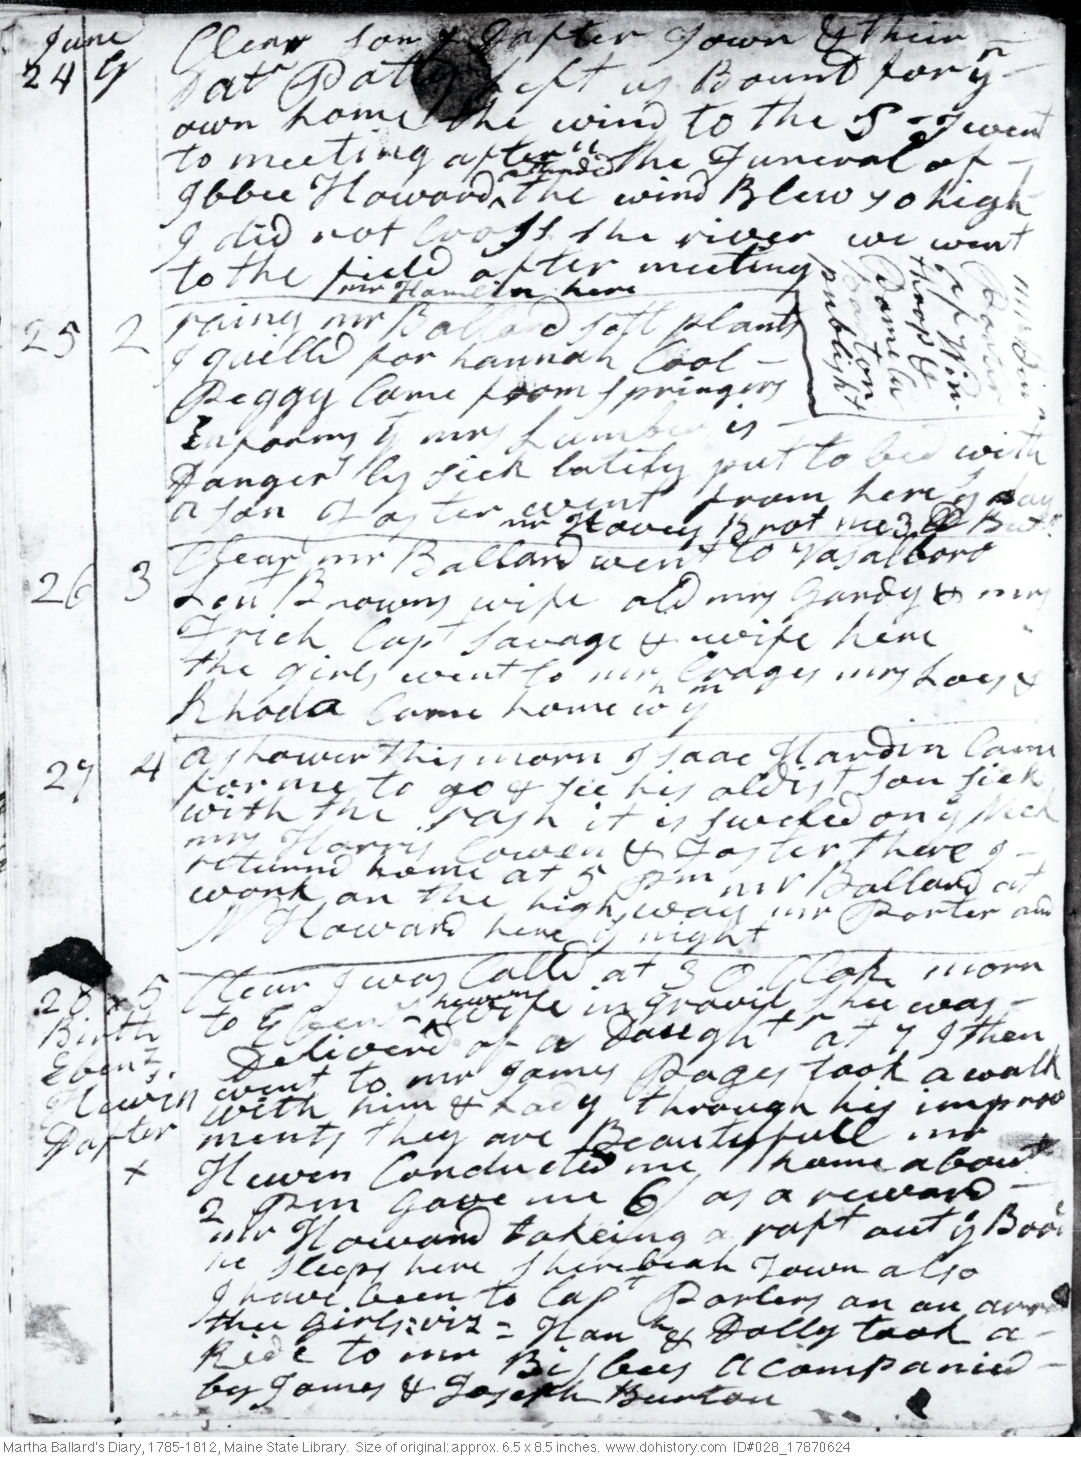 June
24 G Clear son & Dafter Town & thier
Datr Patty Left us Bound for yr
own home the wind to the S - I went
to meeting after" the Funeral of -
attended
Ibbee Howard ^ the wind Blew so high
I did not Cross the river we went
to the field after meeting
mr Hamlin here
25 2 rainy mr Ballard sett plants
I quilld for hannah Cool -
Peggy Came from Springers
Informs yt mrs Lambard is -
Dangerly sick latily put to bed with
a son Foster went from here ys day
mr Hovey Brot me 3 lb Butr
26 3 Clear mr Ballard went to Vasalboro
Len Browns wife old mrs Gardy & mrs
Frich Capt Savage & wife here
the girls went to mr Crages mrs Loes &
Rhoda Came home wh ym
27 4 a shower this morn Isaac Hardin Came
for me to go & see his oldist son sick
with the rash it is sweled on ye Neck
mrs Harris Cowen & Foster there I -
returnd home at 5 Pm mr Ballard at
work on the high way mr Porter and
N Howard here ys night
28 x 5 Clear I was Calld at 3 O Clok morn
hewens
to Ebenr ^ wife in gravil shee was -
Deliverd of a Daught at 7 I then
went to mr James Pages took a walk
with him & Lady through his improv
ments they are Beautifull mr
Hewen Conducted me home about
2 Pm Gave me 6/ as a reward -
mr Howard takeing a raft out ye Boo
he sleeps here Sherebeah Town also
I have been to Capt Porters on an arr
thee Girls: viz = Hanh & Dolly took a -
Ride to mr Bisbees acompanied -
by James & Joseph Burton
Birth
Ebenz.
Hewins
Dafter
x
Porter
Wid
throop &
Pamela
Patton
publisht
Martha Ballard's Diary, 1785-1812, Maine State Library. Size of original: approx. 6.5 x 8.5 inches. www.dohistory.com ID#028_17870624